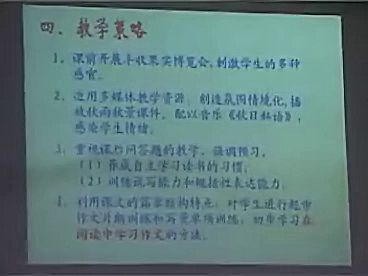 四、教学策略
1、课前开展丰收果实博览会，刺激学生的多种
感官。
2、运用多媒体教学资源，创造氛围情境化，播
放秋雨秋景课件，配以音乐《秋日私语》，
感染学生情绪。
3、重视课后问答题的教学，强调预习。
（1）养成自主学习读书的习惯。
（2）训练说写能力和概括性表达能力。
4、利用课文的篇章结构特点，对学生进行起步
作文片段训练和写景单项训练，初步学习在
阅读中学习作文的方法。